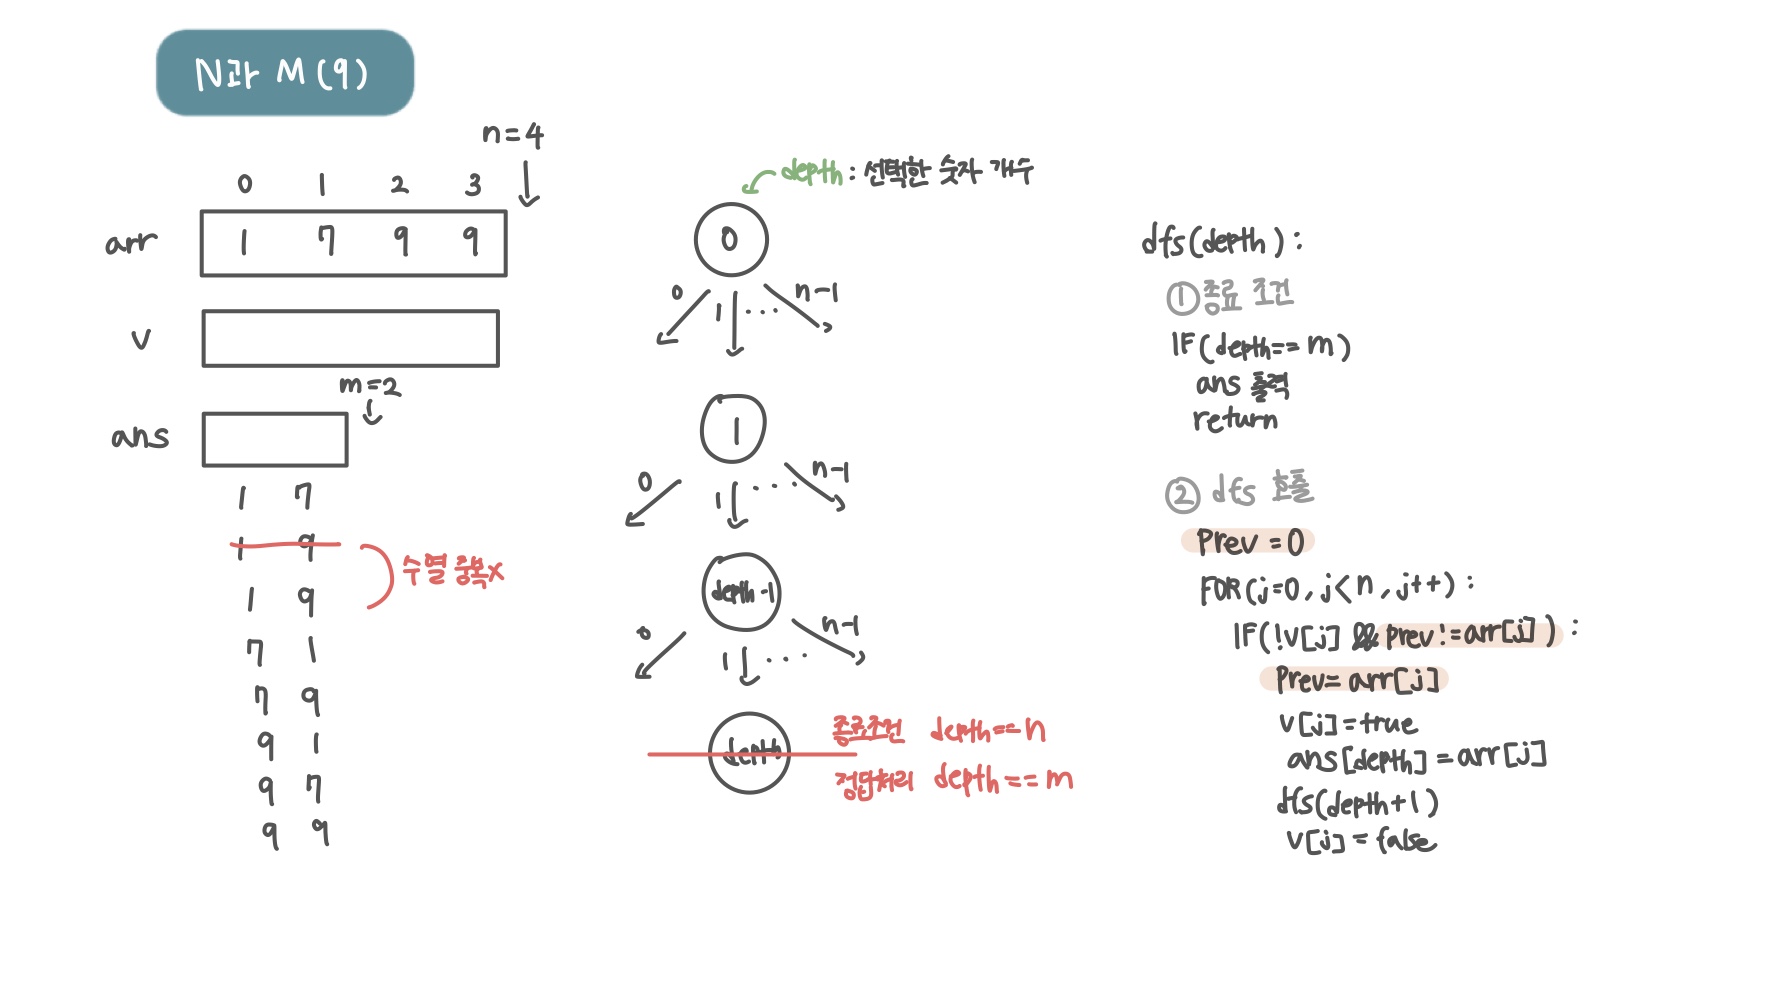 N과 M(9)
n=4
0 1 2 3
arr 1 7 9 9
v
m=2
ans
1 7
1 9
수열 중복x
1 9
7 1
7 9
9 1
9 7
9 9
depth : 선택한 숫자 개수
0
0 1 ... n-1
1
0 1 ... n-1
depth-1
0 1 ... n-1
depth
종료조건 depth==n
정답처리 depth==m
dfs(depth):
① 종료 조건
IF(depth==m)
ans 출력
return
② dfs 호출
Prev=0
FOR(j=0, j<n, j++):
IF(!v[j] && prev!=arr[j]):
Prev=arr[j]
v[j]=true
ans[depth]=arr[j]
dfs(depth+1)
v[j]=false